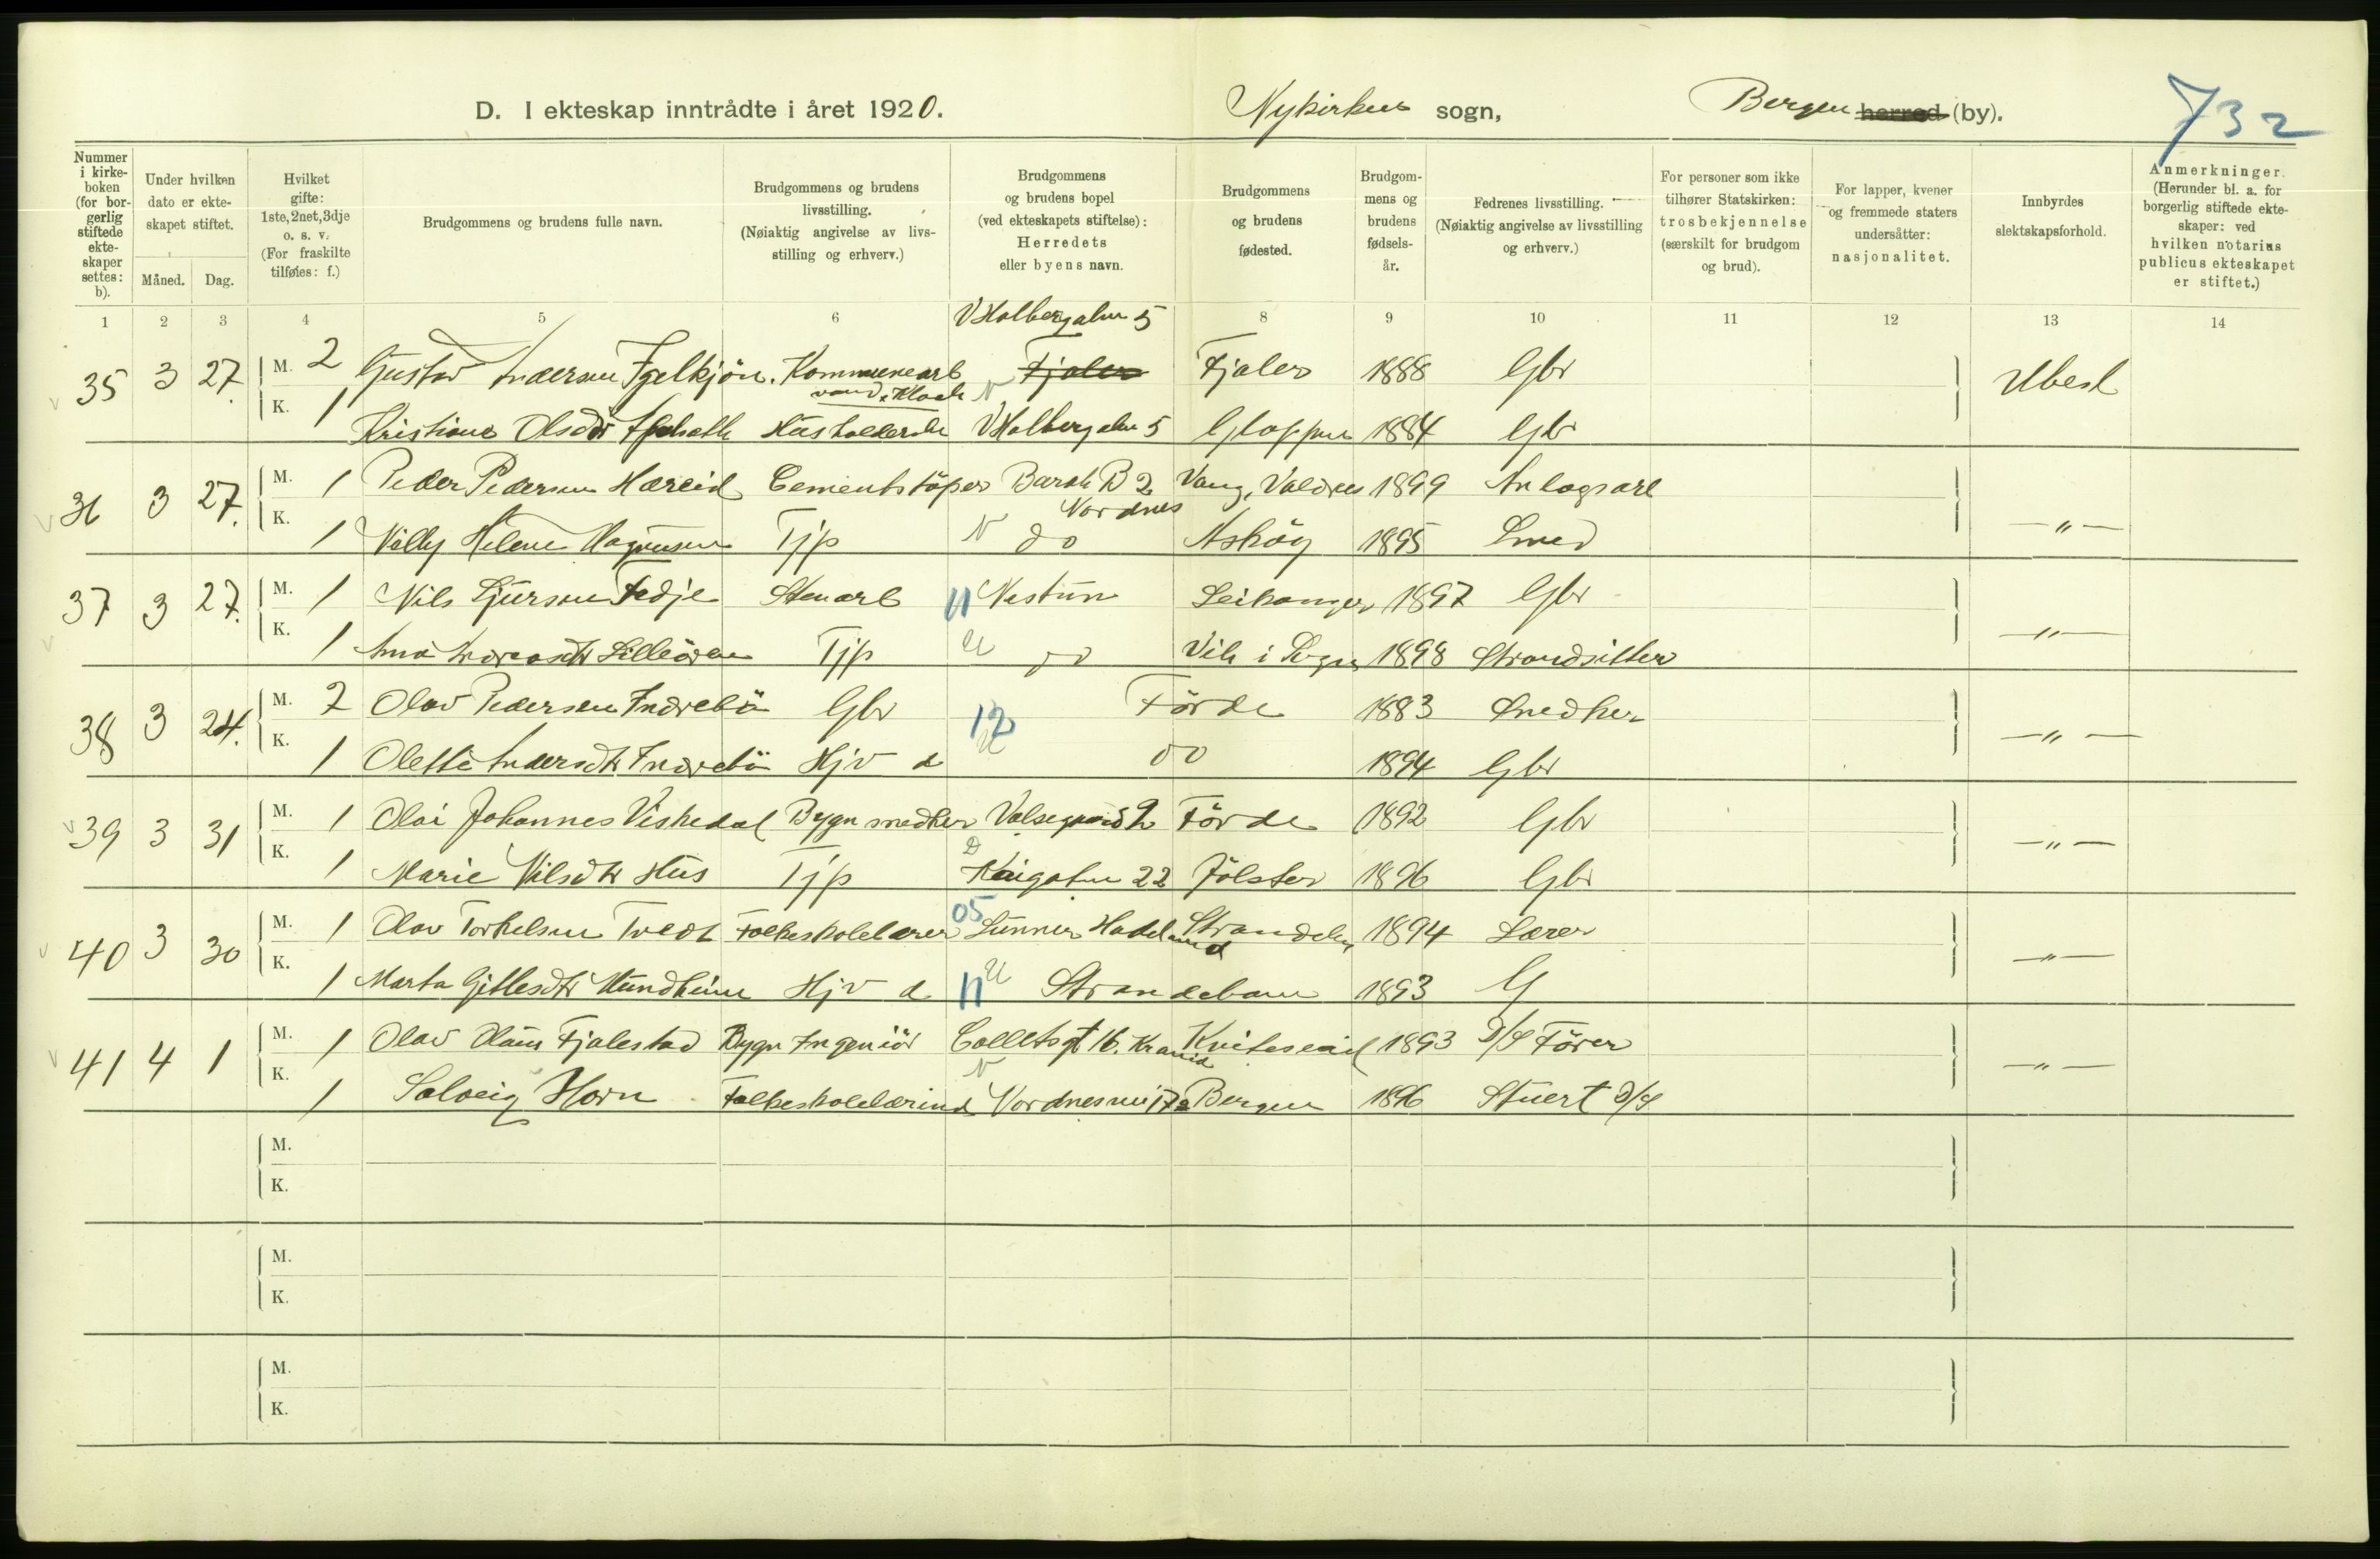 D. I ekteskap inntrådte i året 1920. Nykirken sogn, Bergen herred (by). 732
Nummer i kirke-boken (for bor-gerlig stiftede ekte-skaper settes: b).
Under hvilken dato er ekte-skapet stiftet.
Måned. Dag.
Hvilket gifte: 1ste, 2net, 3dje o. s. v. (For fraskilte tilføies: f.)
Brudgommens og brudens fulle navn.
Brudgommens og brudens livsstilling. (Nøiaktig angivelse av livs-stilling og erhverv.)
Brudgommens og brudens bopel (ved ekteskapets stiftelse): Herredets eller byens navn.
Brudgommens og brudens fødested.
Brudgom-mens og brudens fødsels-år.
Fedrenes livsstilling. (Nøiaktig angivelse av livsstilling og erhverv.)
For personer som ikke tilhører Statskirken: trosbekjennelse (særskilt for brudgom og brud).
For lapper, kvener og fremmede staters undersåtter: nasjonalitet.
Innbyrdes slektskapsforhold.
Anmerkninger. (Herunder bl. a. for borgerlig stiftede ekte-skaper: ved hvilken notarius publicus ekteskapet er stiftet.)
1 2 3 4 5 6 8 9 10 11 12 13 14
V Holbergalm 5
35 3 27. M. 2 Gustav Andersen Igelkjön. Kommunearb Fjaler Fjaler 1888 Gbr Ubesl
vand. Kloak
K. 1 Kristiane Olsdtr Husholderske V Holbergalm 5 Gloppen 1884 Gbr
36 3 27. M. 1 Peder Pedersen Hæreid Cementstöper Barak B 2 Vang, Valdres 1899 Anlagsarb
Nordnes
K. 1 Helene Magnusen Tjp N do Asköy 1895 Smed —"—
37 3 27. M. 1 Nils Sjursen Fedje Stenarb 11 Nestun Leikanger 1897 Gbr
K. 1 Anna Andreasdtr Lilleören Tjp do Vik i Sogn 1898 Strandsitter —"—
38 3 24. M. 2 Olav Pedersen Indrebö Gbr 12 Förde 1883 Snedker
K. 1 Oletta Andersdtr Indrebö Hjv d do 1894 Gbr —"—
39 3 31 M. 1 Olai Johannes Viskedal Bygn snedker Förde 1892 Gbr
K. 1 Marie Nilsdtr Hus Tjp Kaigaten 22 Jölster 1896 Gbr —"—
40 3 30 M. 1 Olav Torkelsen Tvedt Folkeskolelærer 05 Lunner Hadeland Strandebm 1894 Lærer
K. 1 Marta Gitlesdtr Mundheim Hjv d 11 Strandebarm 1893 G —"—
41 4 1 M. 1 Olav Oläus Fjalestad Bygn Ingeniör Collettsgt 16. Krania Kviteseid 1893 D/S Förer
K. 1 Solveig Horn Folkeskolelærinde N Nordnesvei 17a Bergen 1896 Stuert D/S —"—
M.
K.
M.
K.
M.
K.